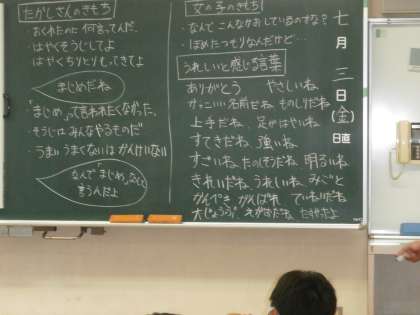 七月三日(金)日直
たかしさんのきもち
・おくれたのに何言ってんだ。
・はやくそうじしてよ
・はやくちりとりもってきてよ
まじめだね
・「まじめ」って言われたくなかった。
・そうじはみんなやるものだ
・うまいうまくないはかんけいない
なんで「まじめ」なんて
言うんだよ
女の子のきもち
・なんでこんなかおしているのかな？
・ほめたつもりなんだけど…
うれしいと感じる言葉
ありがとう やさしいね
かっこいい名前だね ものしりだね
上手だね 足がはやいね
すてきだね 強いね
すごいね たのもしいね 明るいね
きれいだね うれしいね みごと
かんぺき がんばれ ていねいだね
大じょうぶ? えがおだね